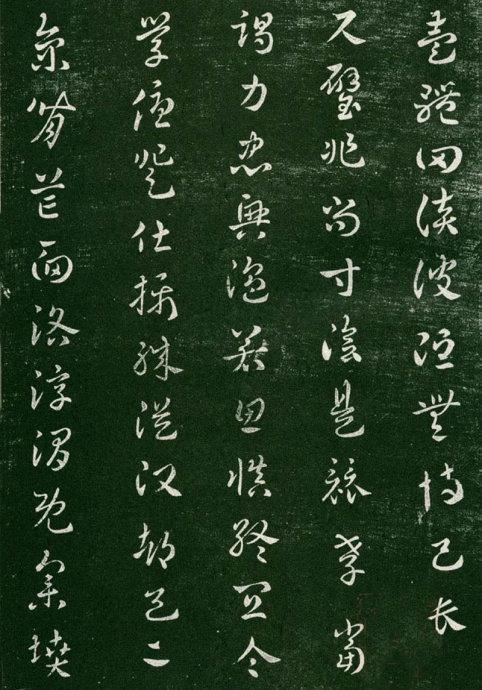 壹體罔談彼短靡恃己長
尺璧非寶寸陰是競孝當
竭力夙興溫若思慎終宜令
學優登仕攝職從政都邑二
京背芒面洛浮渭既集墳